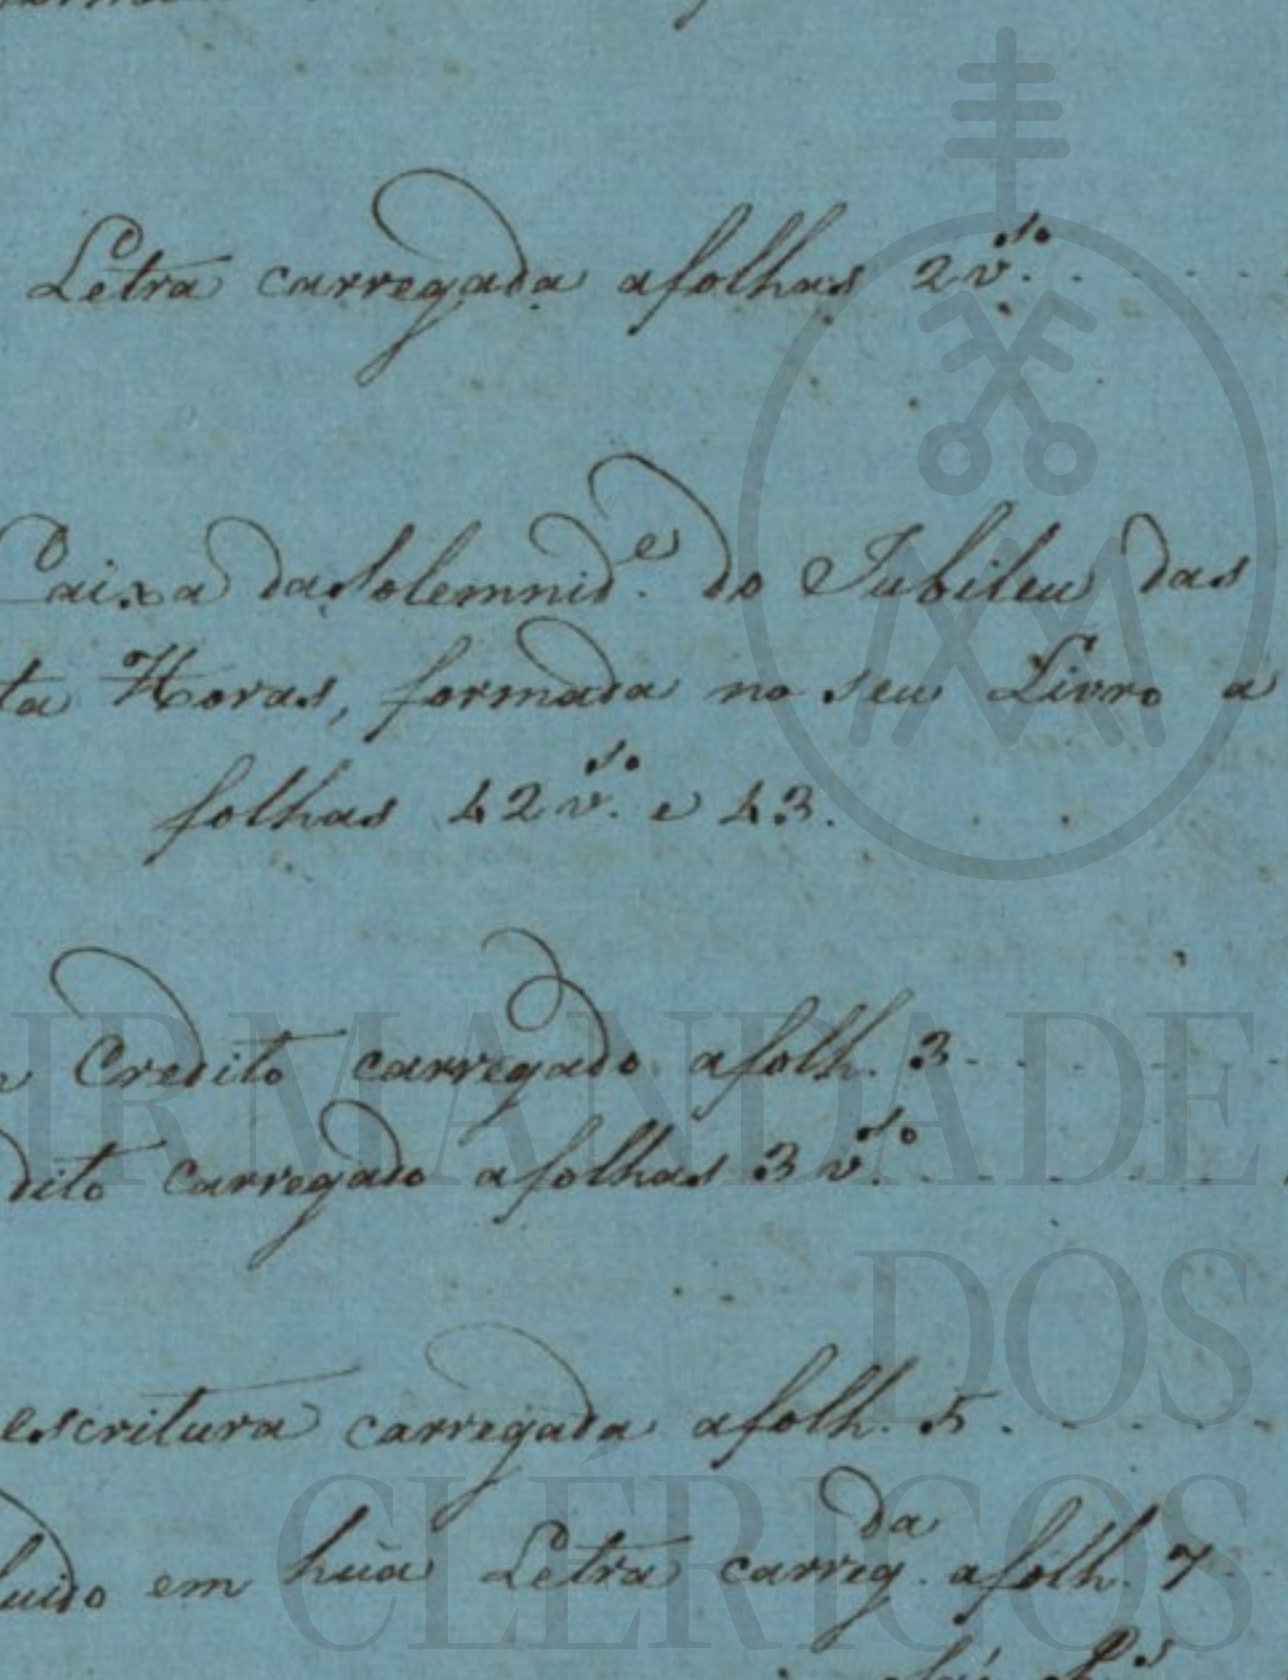 Letra carregada afolhas 2v.so
Caixa da Solemnid.e do Jubileu das
ta Horas, formada no seu Livro a
folhas 42v.so e 43.
e Credito carregado afolh. 3
dito carregado afolhas 3v.so
escritura carregada afolh. 5.
luido em hũa Letra carreg.da afolh. 7
IRMANDADE
DOS
CLÉRIGOS